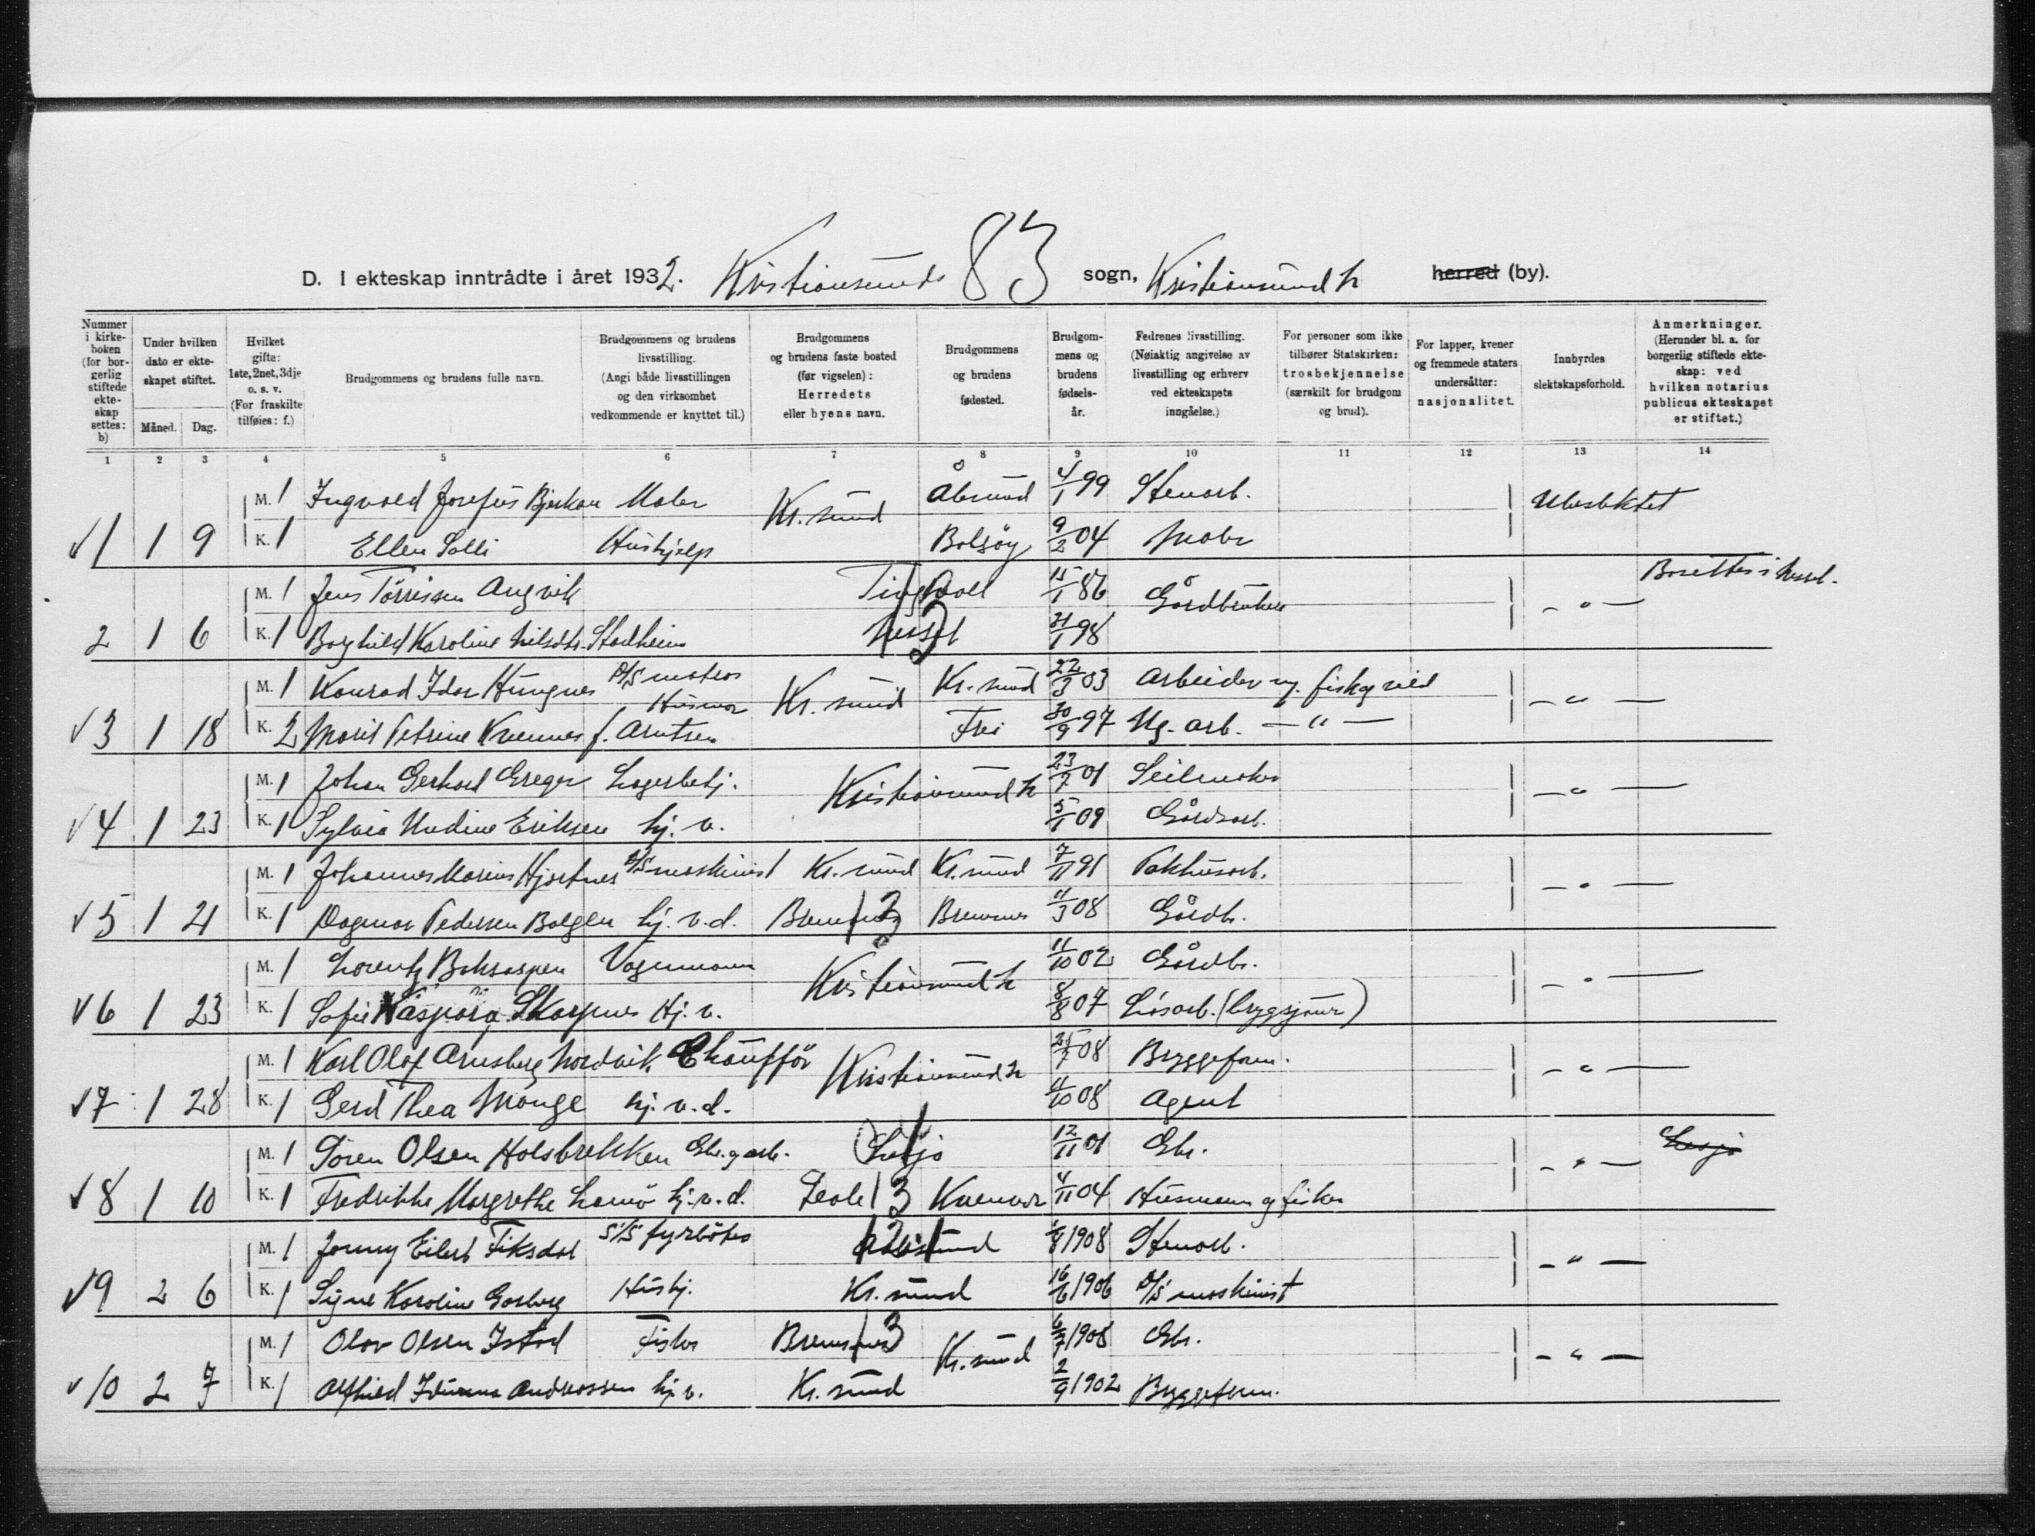 D. I ekteskap inntrådte i året 1932. Kristiansunds 83 sogn, Kristiansund N herred (by).
Nummer i kirkeboken (for borgerlig stiftede ekteskap settes: b)
Under hvilken dato er ekteskapet stiftet.
Måned. Dag.
Hvilket gifte: 1ste, 2net, 3dje o. s. v. (For fraskilte tilføies: f.)
Brudgommens og brudens fulle navn.
Brudgommens og brudens livsstilling. (Angi både livsstillingen og den virksomhet vedkommende er knyttet til.)
Brudgommens og brudens faste bosted (før vigselen): Herredets eller byens navn.
Brudgommens og brudens fødested.
Brudgommens og brudens fødselsår.
Fedrenes livsstilling. (Nøiaktig angivelse av livsstilling og erhverv ved ekteskapets inngåelse.)
For personer som ikke tilhører Statskirken: trosbekjennelse (særskilt for brudgom og brud).
For lapper, kvener og fremmede staters undersåtter: nasjonalitet.
Innbyrdes slektskapsforhold.
Anmerkninger. (Herunder bl. a. for borgerlig stiftede ekteskap: ved hvilken notarius publicus ekteskapet er stiftet.)
1 2 3 4 5 6 7 8 9 10 11 12 13 14
M. 1 Ingvald Josefus Bjerkan Maler Kr. sund Ålesund 4/1 99 Stenarb. Ubeslektet
√1 1 9 K. 1 Ellen Solli Hushjelp Bolsøy 9/2 04 Maler
M. 1 Jens Tørrissen Angvik Tingvoll 15/1 86 Gårdbruker - " - Bosettes i Nesset.
2 1 6 K. 1 Borghild Karoline Nilsdtr. Stadheim Nesset 31/1 98
M. 1 Konrad Idar Hungnes D/S matros Kr. sund Kr. sund 22/3 03 Arbeider v. fisk - " -
√3 1 18 K. 2 Marit Petrine Kvennes f. Arntsen Husmor Frei 30/9 97 Ug. arb. - " -
M. 1 Johan Gerhard Greger Lagerbetj. Kristiansund N 23/7 01 Seilmaker - " -
√4 1 23 K. 1 Sylvia Undine Eriksen hj. v. 5/1 09 Gårdsarb.
M. 1 Johannes Marius Hjortnes D/S maskinist Kr. sund Kr. sund 7/11 91 Pakhusarb. - " -
√5 1 21 K. 1 Dagmar Pedersen Bolgen hj. v. d. Bremsnes 13 Bremsnes 11/3 08 Gårdb.
M. 1 Lorentz Boksaspen Vognmann Kristiansund N 11/10 02 Gårdbr. - " -
√6 1 23 K. 1 Sofie Kaspara Skarpnes Hj. v. 8/8 07 Løsarb. (bryggesjauer)
M. 1 Karl Olaf Arnsberg Nordvik Chauffør Kristiansund N 25/7 08 Byggeform. - " -
√7 1 28 K. 1 Gerd Thea Monge hj. v. d. 11/10 08 Agent
M. 1 Søren Olsen Holsbrekken Gbr. g. arb. Lesja 12/11 01 Gbr. - " - Lesja
√8 1 10 K. 1 Fredrikke Margrethe Lamo hj. v. d. 13 Kvernes 4/11 04 Husmann og fisker
M. 1 Jonny Eilert Fiksdal S/S fyrbøter Ålesund /8 1908 Stenarb. - " -
√9 2 6 K. 1 Signe Karoline Garberg Hushj. Kr. sund 16/6 1906 D/S maskinist
M. 1 Olav Olsen Istad Fisker Bremsnes 13 Kr. sund 6/7 1908 Gbr. - " -
√10 2 7 K. 1 Alfhild Idunna Andreassen hj. v. Kr. sund 2/9 1902 Byggeform.